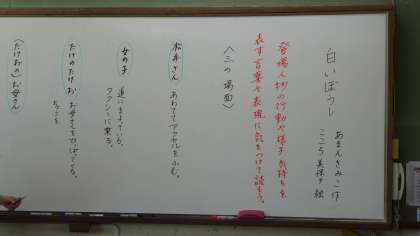 白いぼうし
あまんきみこ 作
こころ 美保子 絵
登場人物の行動や様子、気持ちを
表す言葉や表現に気をつけて読もう。
〈三の場面〉
松井さん あわててアクセルをふむ。
女の子 道にまよっている。
タクシーに乗る。
たけのたけお お母さんをひっぱってくる。
(たけおの)お母さん